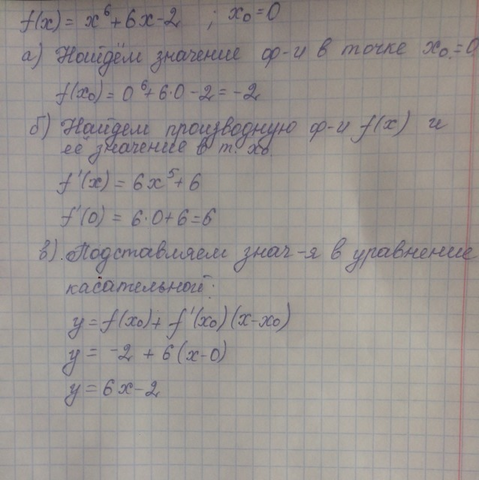 f(x) = x⁶ + 6x - 2 ; x₀ = 0
а) Найдём значение ф-и в точке x₀ = 0
f(x₀) = 0⁶ + 6·0 - 2 = -2
б) Найдем производную ф-и f(x) и
её значение в т. x₀
f'(x) = 6x⁵ + 6
f'(0) = 6·0 + 6 = 6
в). Подставляем знач-я в уравнение
касательной:
y = f(x₀) + f'(x₀)(x - x₀)
y = -2 + 6(x - 0)
y = 6x - 2